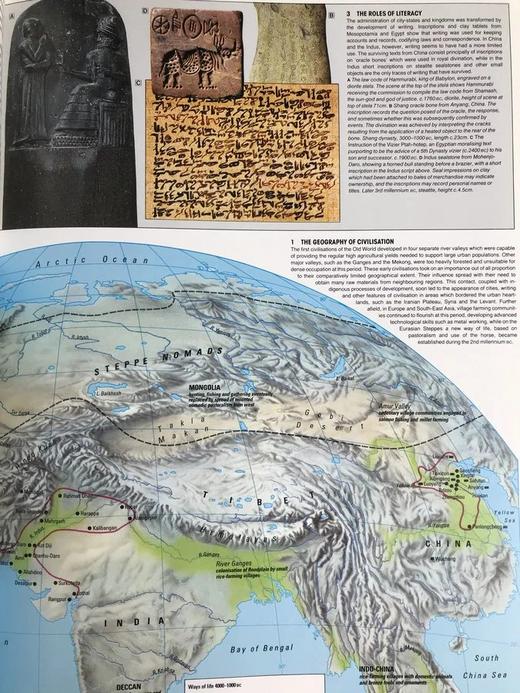 A
D
B
C
3 THE ROLES OF LITERACY
The administration of city-states and kingdoms was transformed by
the development of writing. Inscriptions and clay tablets from
Mesopotamia and Egypt show that writing was used for keeping
accounts and records, codifying laws and correspondence. In China
and the Indus, however, writing seems to have had a more limited
use. The surviving texts from China consist principally of inscriptions
on 'oracle bones' which were used in royal divination, while in the
Indus short inscriptions on steatite sealstones and other small
objects are the only traces of writing that have survived.
A The law code of Hammurabi, king of Babylon, engraved on a
diorite stela. The scene at the top of the stela shows Hammurabi
receiving the commission to compile the law code from Shamash,
the sun-god and god of justice. c.1760 BC, diorite, height of scene at
top of stela 71cm. B Shang oracle bone from Anyang, China. The
inscription records the question posed of the oracle, the response,
and sometimes whether this was subsequently confirmed by
events. The divination was achieved by interpreting the cracks
resulting from the application of a heated object to the rear of the
bone. Shang dynasty, length c.23cm. C The
Instruction of the Vizier Ptah-hotep, an Egyptian moralising text
purporting to be the advice of a 5th Dynasty vizier (c.2400 BC) to his
son and successor. c.1900 BC. D Indus sealstone from Mohenjo-
Daro, showing a horned bull standing before a brazier, with a short
inscription in the Indus script above. Seal impressions on clay
which had been attached to bales of merchandise may indicate
ownership, and the inscriptions may record personal names or
titles. Later 3rd millennium BC, steatite, height c.4.5cm.
1 THE GEOGRAPHY OF CIVILISATION
The first civilisations of the Old World developed in four separate river valleys which were capable
of providing the regular high agricultural yields needed to support large urban populations. Other
major valleys, such as the Ganges and the Mekong, were too heavily forested and unsuitable for
dense occupation at this period. These early civilisations took on an importance out of all proportion
to their comparatively limited geographical extent. Their influence spread with their need to
obtain many raw materials from neighbouring regions. This contact, coupled with in-
digenous processes of development, soon led to the appearance of cities, writing
and other features of civilisation in areas which bordered the urban heart-
lands, such as the Iranian Plateau, Syria and the Levant. Further
afield, in Europe and South-East Asia, village farming communit-
ies continued to flourish at this period, developing advanced
technological skills such as metal working, while on the
Eurasian Steppes a new way of life, based on
pastoralism and use of the horse, became
established during the 2nd millennium BC.
Arctic Ocean
STEPPE NOMADS
L. Baikal
L. Balkhash
MONGOLIA
hunting, fishing and gathering eventually
replaced by spread of mounted
nomadic pastoralism from west
Amur Valley
sedentary village communities engaged in
salmon fishing and millet farming
Gobi
Desert
Takla
Makan
TIBET
Himalayas
Rahman Dheri
Harappa
Mehrgarh
Kalibangan
Kot Diji
Chanhu-Daro
Amri
Allahdino
Desalpur
Surkotada
Lothal
Rangpur
R. Ganges
River Ganges
colonisation of floodplain by small
rice-farming villages
Anyang
R. Yangtze
Panlongcheng
Yellow
Sea
CHINA
Wucheng
INDIA
DECCAN
Bay of Bengal
INDO-CHINA
rice-farming villages with domestic animals
and bronze tools and ornaments
South
China Sea
Ways of life 4000-1000 BC